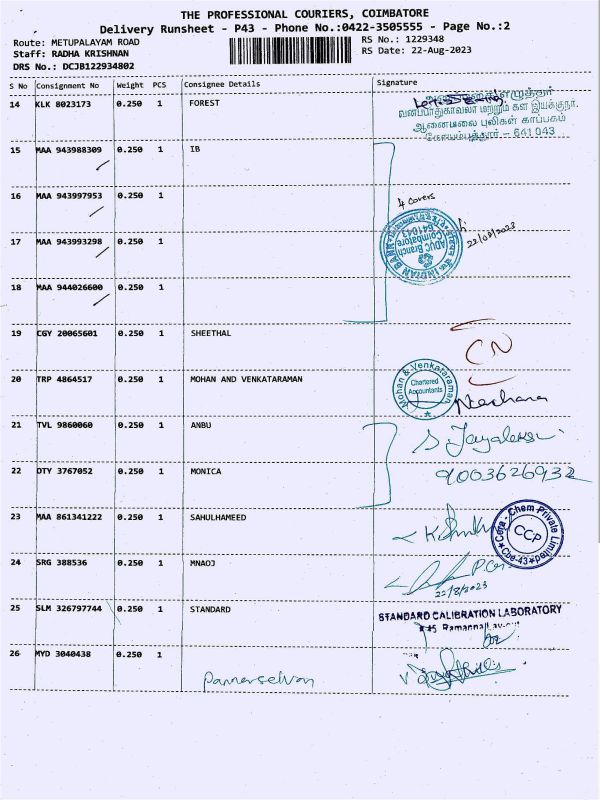 THE PROFESSIONAL COURIERS, COIMBATORE
Delivery Runsheet - P43 - Phone No.:0422-3505555 - Page No.:2
Route: METUPALAYAM ROAD RS No.: 1229348
Staff: RADHA KRISHNAN RS Date: 22-Aug-2023
DRS No.: DCJB122934802
S No Consignment No Weight PCS Consignee Details Signature
14 KLK 8023173 0.250 1 FOREST
வனப்பாதுகாவலர் மற்றும் கள இயக்குநர்
ஆனைமலை புலிகள் காப்பகம்
கோயம்புத்தூர் – 641 043
15 MAA 943988309 0.250 1 IB
16 MAA 943997953 0.250 1
4 covers
17 MAA 943993298 0.250 1
INDIAN BANK
ADUC Branch
Coimbatore
641043
22/08/2023
18 MAA 944026600 0.250 1
19 CGY 20065601 0.250 1 SHEETHAL
CN
20 TRP 4864517 0.250 1 MOHAN AND VENKATARAMAN
Mohan & Venkataraman
Chartered
Accountants
21 TVL 9860060 0.250 1 ANBU
22 OTY 3767052 0.250 1 MONICA
9003626932
23 MAA 861341222 0.250 1 SAHULHAMEED
Cera-Chem Private Limited
CCP
Cbe-43
24 SRG 388536 0.250 1 MNAOJ
22/8/2023
25 SLM 326797744 0.250 1 STANDARD
STANDARD CALIBRATION LABORATORY
26 MYD 3040438 0.250 1
Pannerselvam